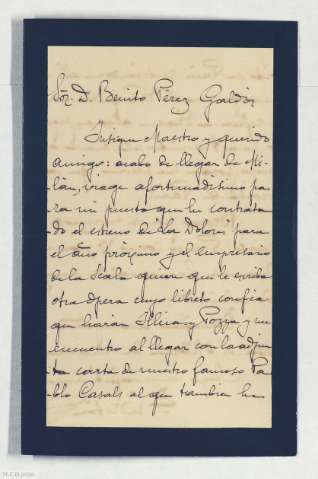 Sor. D. Benito Pérez Galdós
Insigne Maestro y querido
amigo: acabo de llegar de Mi-
lán, viaje afortunadisimo pa-
ra mi puesto que he contrata-
do el estreno de la Dolores para
el año próximo y el empresario
de la Scala quiere que le escriba
otra ópera cuyo libreto confia
que harian Illica y Pozza y me
encuentro al llegar con la adjun-
ta carta de nuestro famoso Pa-
blo Casals al que tambien he